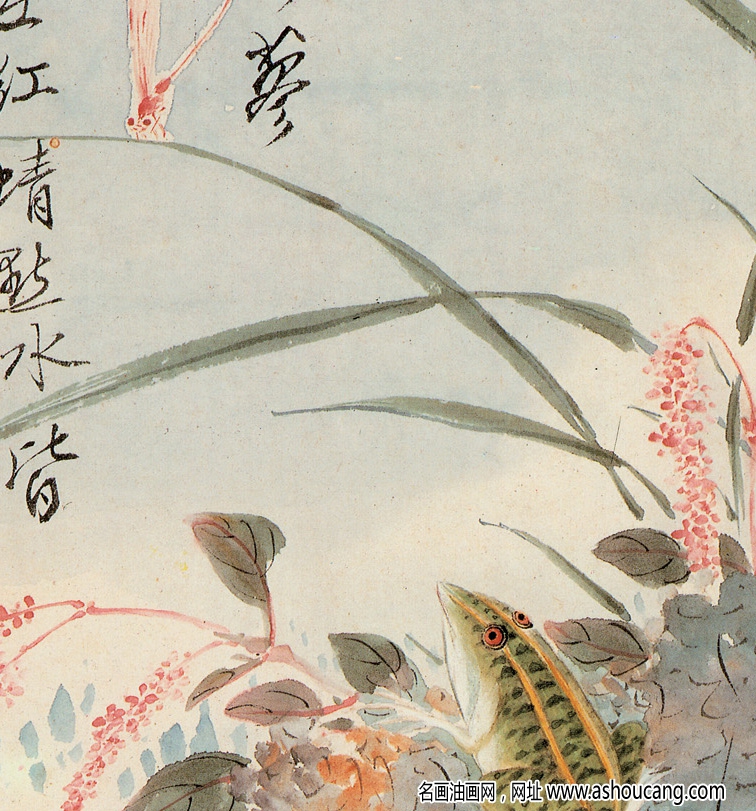 蓼
紅
蜻
點
水
皆
名画油画网，网址 www.ashoucang.com